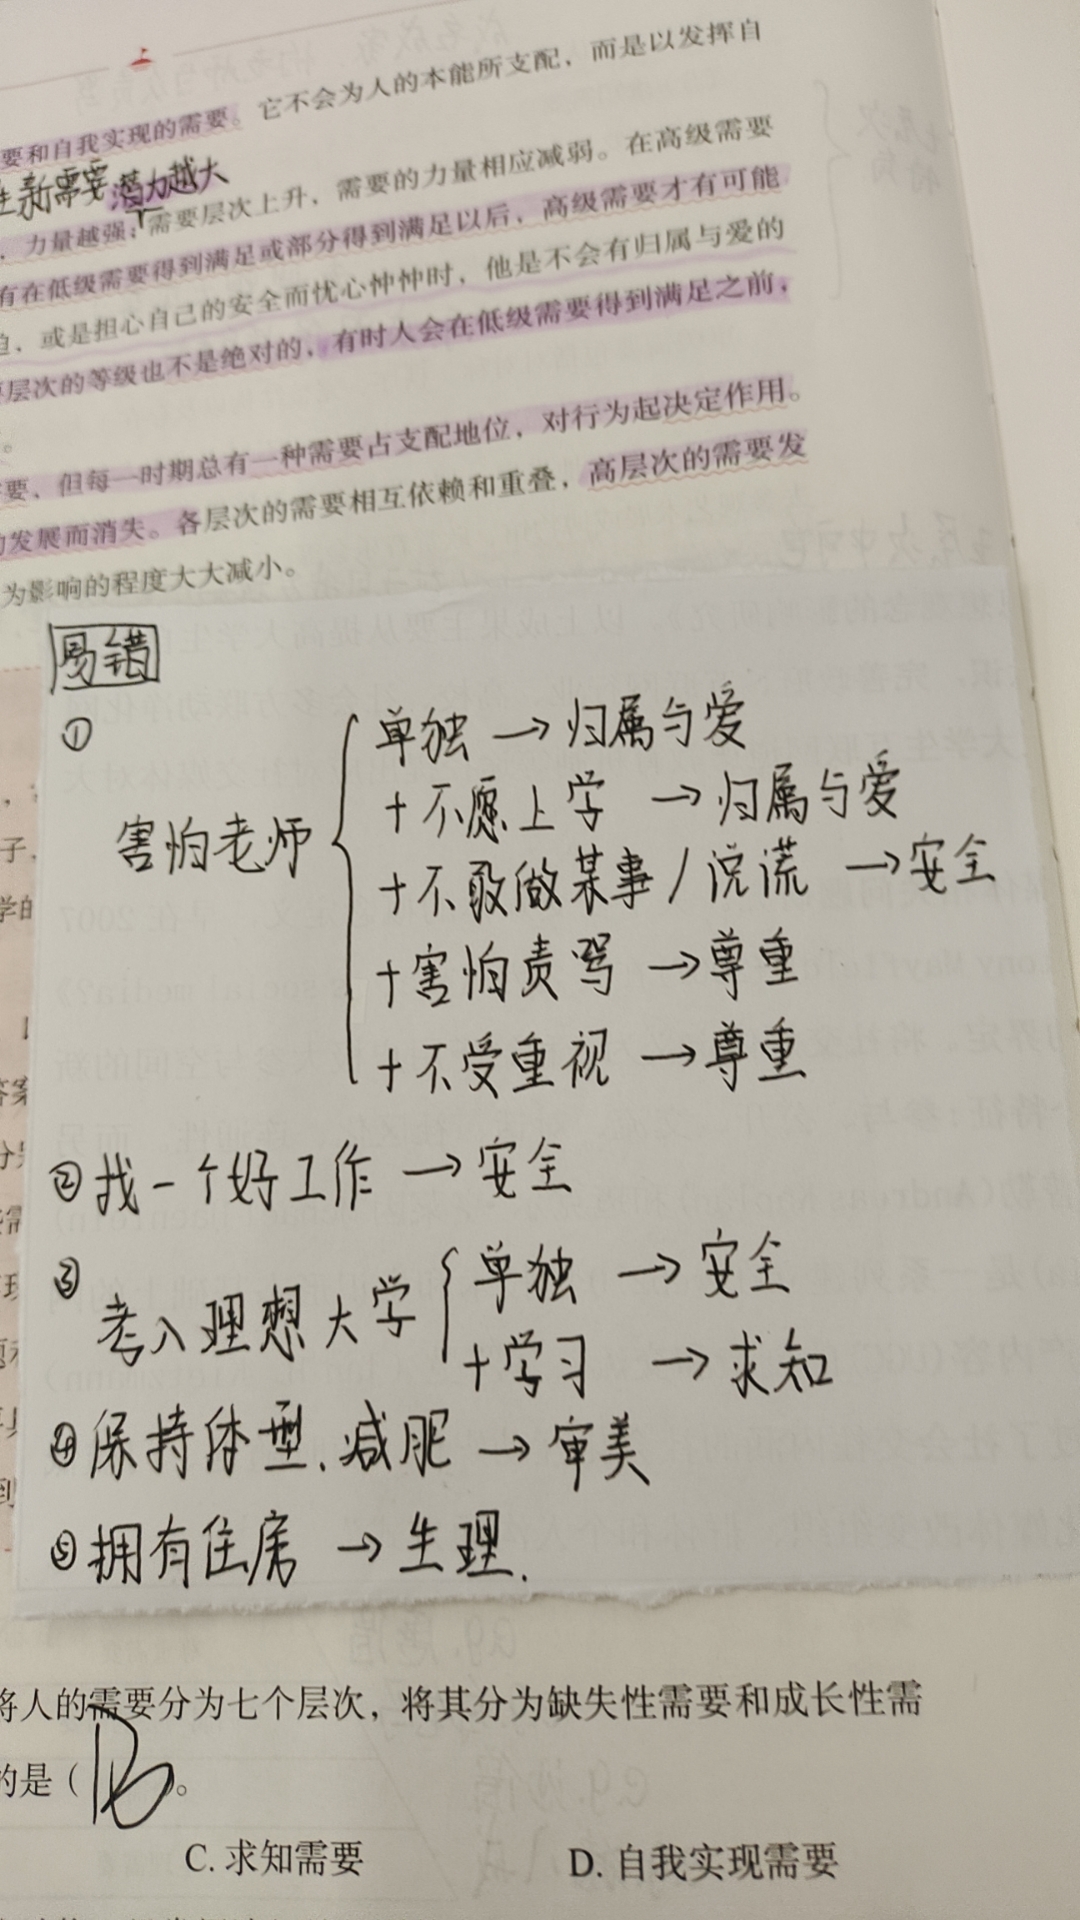 要和自我实现的需要。它不会为人的本能所支配，而是以发挥自
生新需要潜力越大
，力量越强；需要层次上升，需要的力量相应减弱。在高级需要
有在低级需要得到满足或部分得到满足以后，高级需要才有可能
迫，或是担心自己的安全而忧心忡忡时，他是不会有归属与爱的
层次的等级也不是绝对的，有时人会在低级需要得到满足之前，
。
要，但每一时期总有一种需要占支配地位，对行为起决定作用。
发展而消失。各层次的需要相互依赖和重叠，高层次的需要发
为影响的程度大大减小。
易错
①
害怕老师
单独→归属与爱
+不愿上学→归属与爱
+不敢做某事/说谎→安全
+害怕责骂→尊重
+不受重视→尊重
②找一个好工作→安全
③
考入理想大学
单独→安全
+学习→求知
④保持体型、减肥→审美
⑤拥有住房→生理.
将人的需要分为七个层次，将其分为缺失性需要和成长性需
的是（B）。
C. 求知需要 D. 自我实现需要